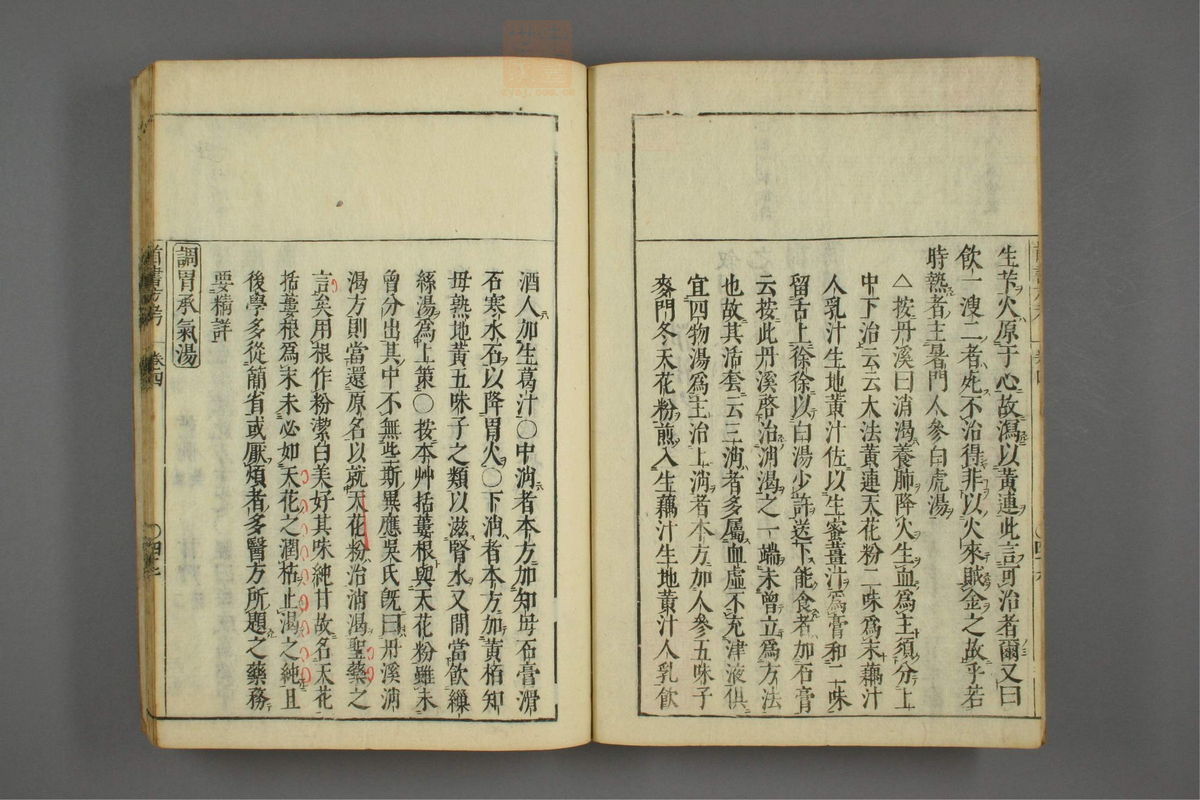 生苄火原于心故瀉以黃連此言可治者爾又曰
飲一溲二者死不治得非以火來賊金之故乎若
時熱者主暑門人參白虎湯
△按丹溪曰消渴養肺降火生血為主須分上
中下治云云大法黃連天花粉二味為末藕汁
人乳汁生地黃汁佐以生蜜薑汁為膏和二味
留舌上徐徐以白湯少許送下能食者加石膏
云按此丹溪啓治消渴之一端未曾立為方法
也故其活套云三消者多屬血虛不充津液俱
宜四物湯為主治上消者本方加人參五味子
麥門冬天花粉煎入生藕汁生地黃汁人乳飲
酒人加生葛汁○中消者本方加知母石膏滑
石寒水石以降胃火○下消者本方加黃栢知
母熟地黃五味子之類以滋腎水又間當飲繅
絲湯為上策○按本艸括蔞根與天花粉雖未
曾分出其中不無些斯異應吳氏既曰丹溪消
渴方則當還原名以就天花粉治消渴聖藥之
言矣用根作粉潔白美好其味純甘故名天花
括蔞根為末未必如天花之潤枯止渴之純且
後學多從簡省或厭煩者多醫方所題之藥務
要精詳
調胃承氣湯
首書方考
卷四